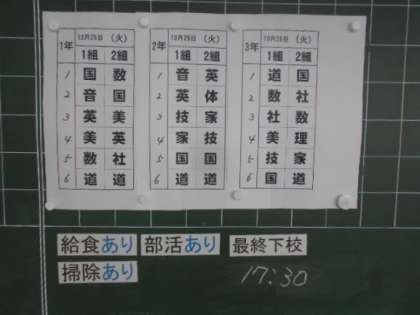 1年 10月25日 (火)
1組 2組
1 国 数
2 音 国
3 英 美
4 美 英
5 数 社
6 道 道
2年 10月25日 (火)
1組 2組
1 音 英
2 英 体
3 技 家
4 家 技
5 国 国
6 道 道
3年 10月25日 (火)
1組 2組
1 道 国
2 数 社
3 社 数
4 美 理
5 技 家
6 国 道
給食あり 部活あり 最終下校
掃除あり 17:30